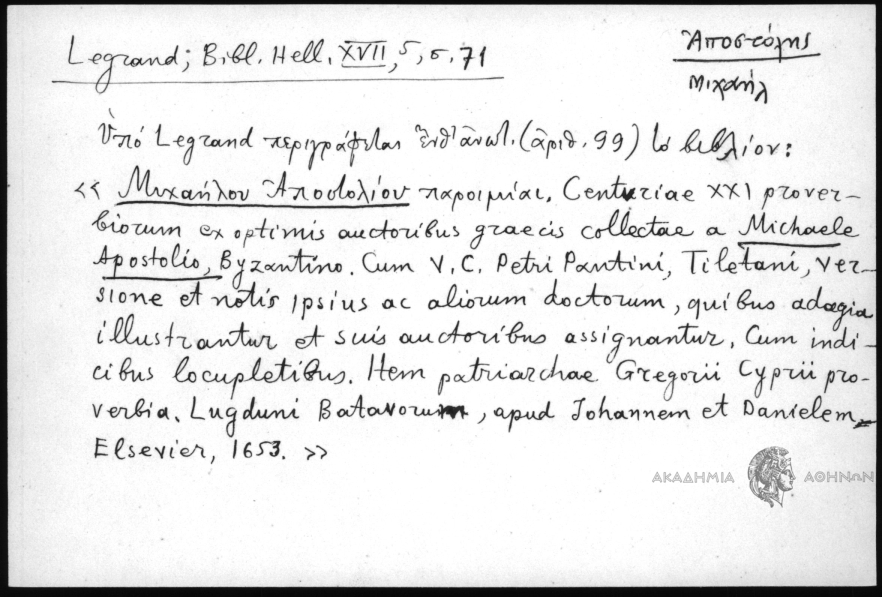 Legrand; Bibl. Hell. XVII, 5, σ. 71
Ἀποστόλης
Μιχαήλ
Ὑπό Legrand περιγράφεται ἔνθ' ἀνωτ. (ἀριθ. 99) τό βιβλίον:
<< Μιχαήλου Ἀποστολίου παροιμίαι. Centuriae XXI prover-
biorum ex optimis auctoribus graecis collectae a Michaele
Apostolio, Byzantino. Cum V. C. Petri Pantini, Tiletani, ver-
sione et notis ipsius ac aliorum doctorum, quibus adagia
illustrantur et suis auctoribus assignantur. Cum indi-
cibus locupletibus. Item patriarchae Gregorii Cyprii pro-
verbia. Lugduni Batavorum, apud Johannem et Danielem
Elsevier, 1653. >>
ΑΚΑΔΗΜΙΑ ΑΘΗΝΩΝ